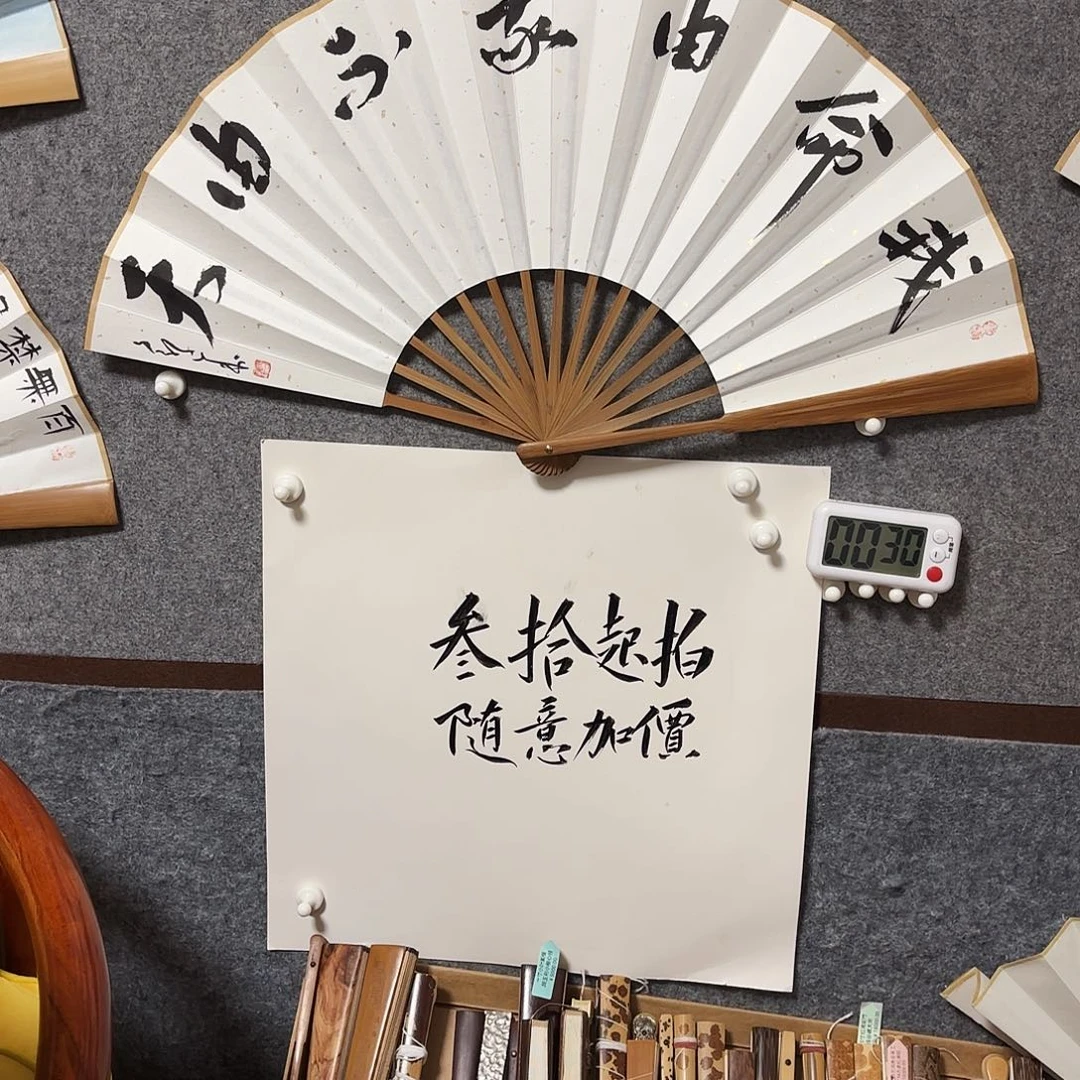 我命由我不由天
百無禁
叁拾起拍
随意加價
00 30